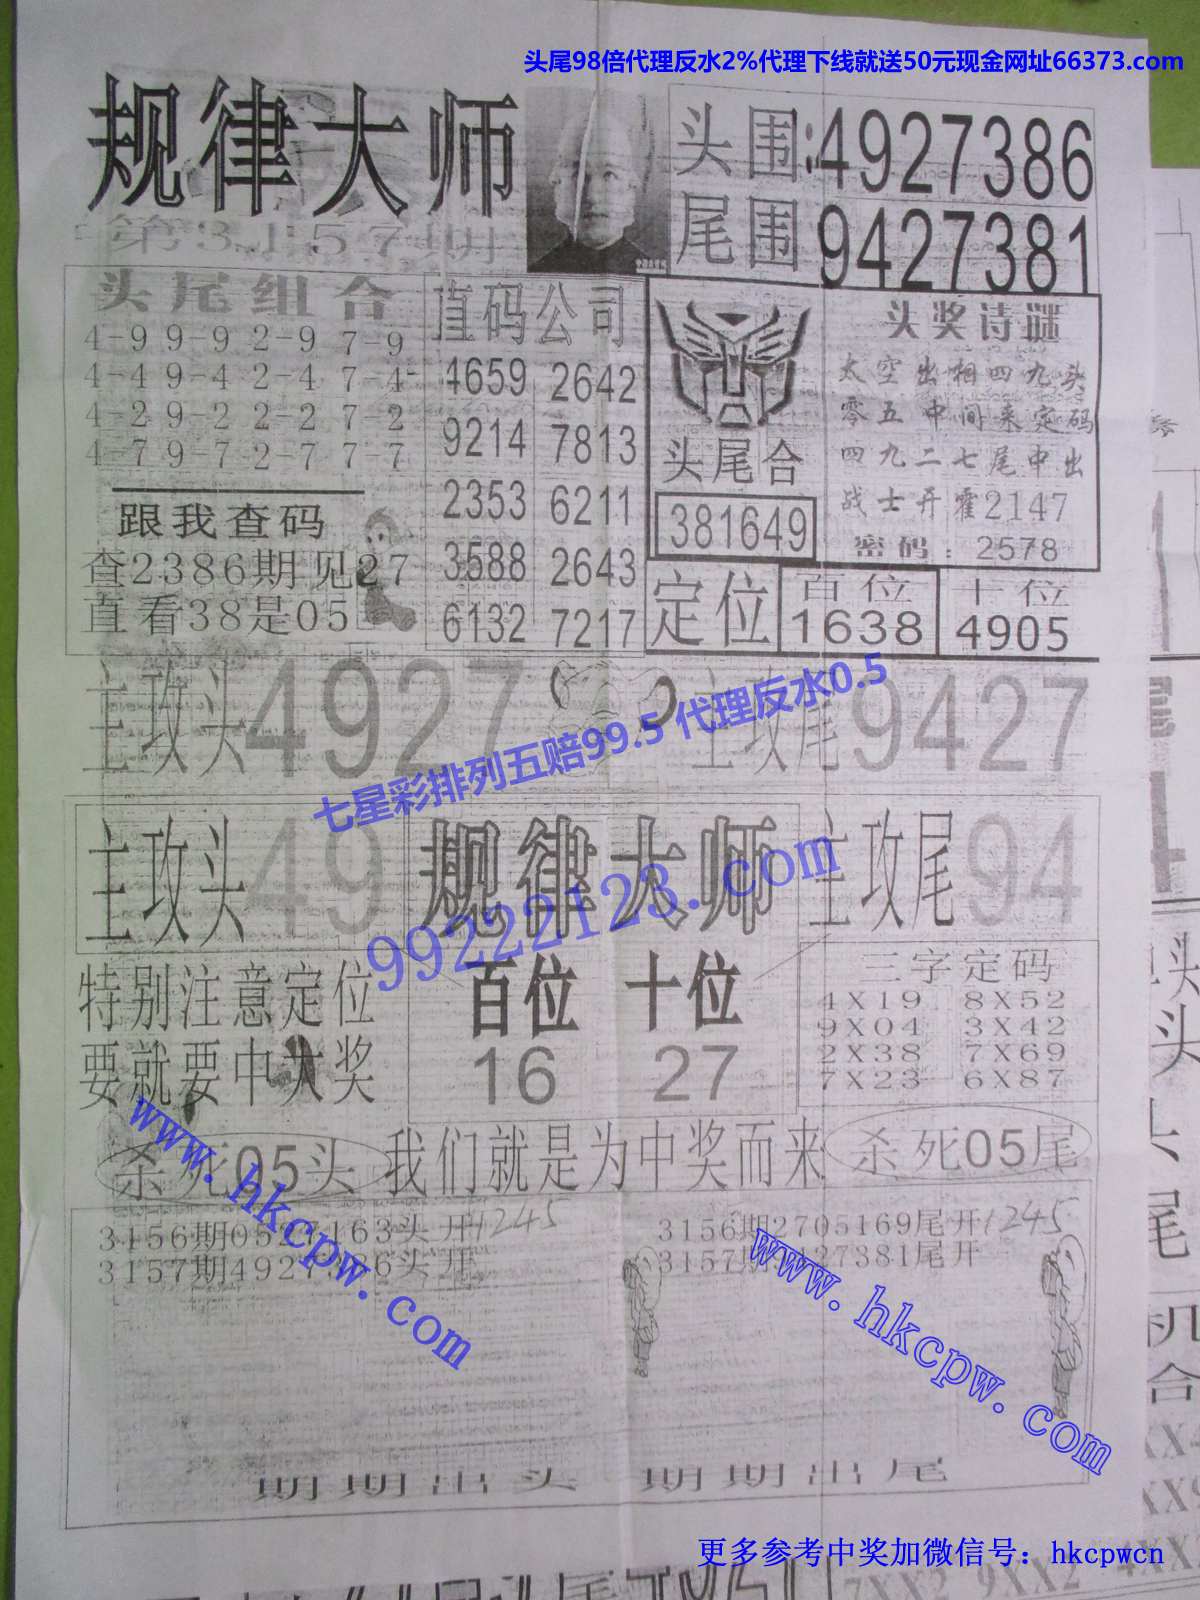 头尾98倍代理反水2%代理下线就送50元现金网址66373.com
规律大师
第3157期
头围:4927386
尾围9427381
头尾组合
4-9 9-9 2-9 7-9
4-4 9-4 2-4 7-4
4-2 9-2 2-2 7-2
4-7 9-7 2-7 7-7
跟我查码
查2386期见27
直看38是05
直码公司
4659 2642
9214 7813
2353 6211
3588 2643
6132 7217
头尾合
381649
头奖诗谜
太空出相四九头
零五中间来定码
四九二七尾中出
战士开霍2147
密码:2578
定位
百位
1638
十位
4905
主攻头4927
主攻尾9427
七星彩排列五赔99.5 代理反水0.5
主攻头49
规律大师
主攻尾94
99222123.com
特别注意定位
要就要中大奖
百位 十位
16 27
三字定码
4X19 8X52
9X04 3X42
2X38 7X69
7X23 6X87
杀死05头
我们就是为中奖而来
杀死05尾
www.hkcpw.com
www.hkcpw.com
3156期0527163头开1245
3157期4927386头开
3156期2705169尾开1245
3157期9427381尾开
期期出头 期期出尾
更多参考中奖加微信号：hkcpwcn
7XX2 9XX2 4XX